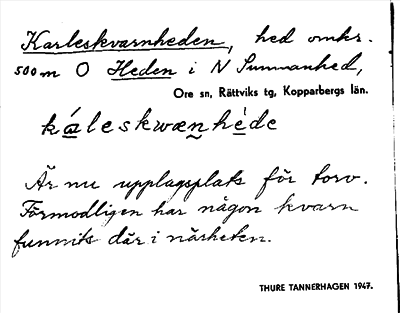 Karleskvarnheden, hed omkr.
500 m O Heden i N Sunnanhed,
Ore sn, Rättviks tg, Kopparbergs län.
káleskwænhède
Är nu upplagsplats för torv.
Förmodligen har någon kvarn
funnits där i närheten.
THURE TANNERHAGEN 1947.